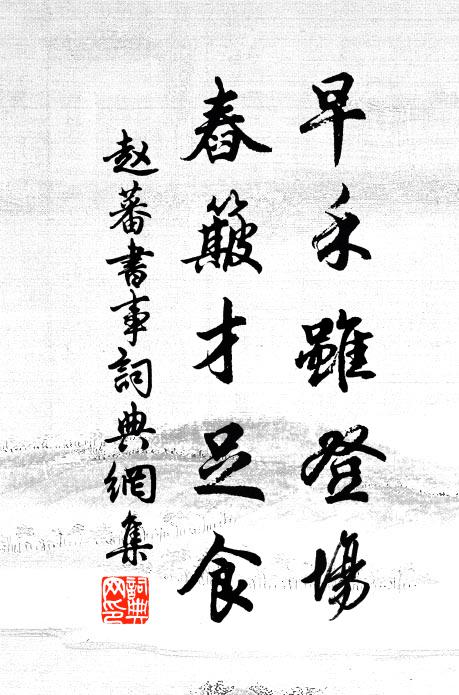 早禾雖登場
舂簸才足食
赵蕃書事詞典網集
詞典
网印